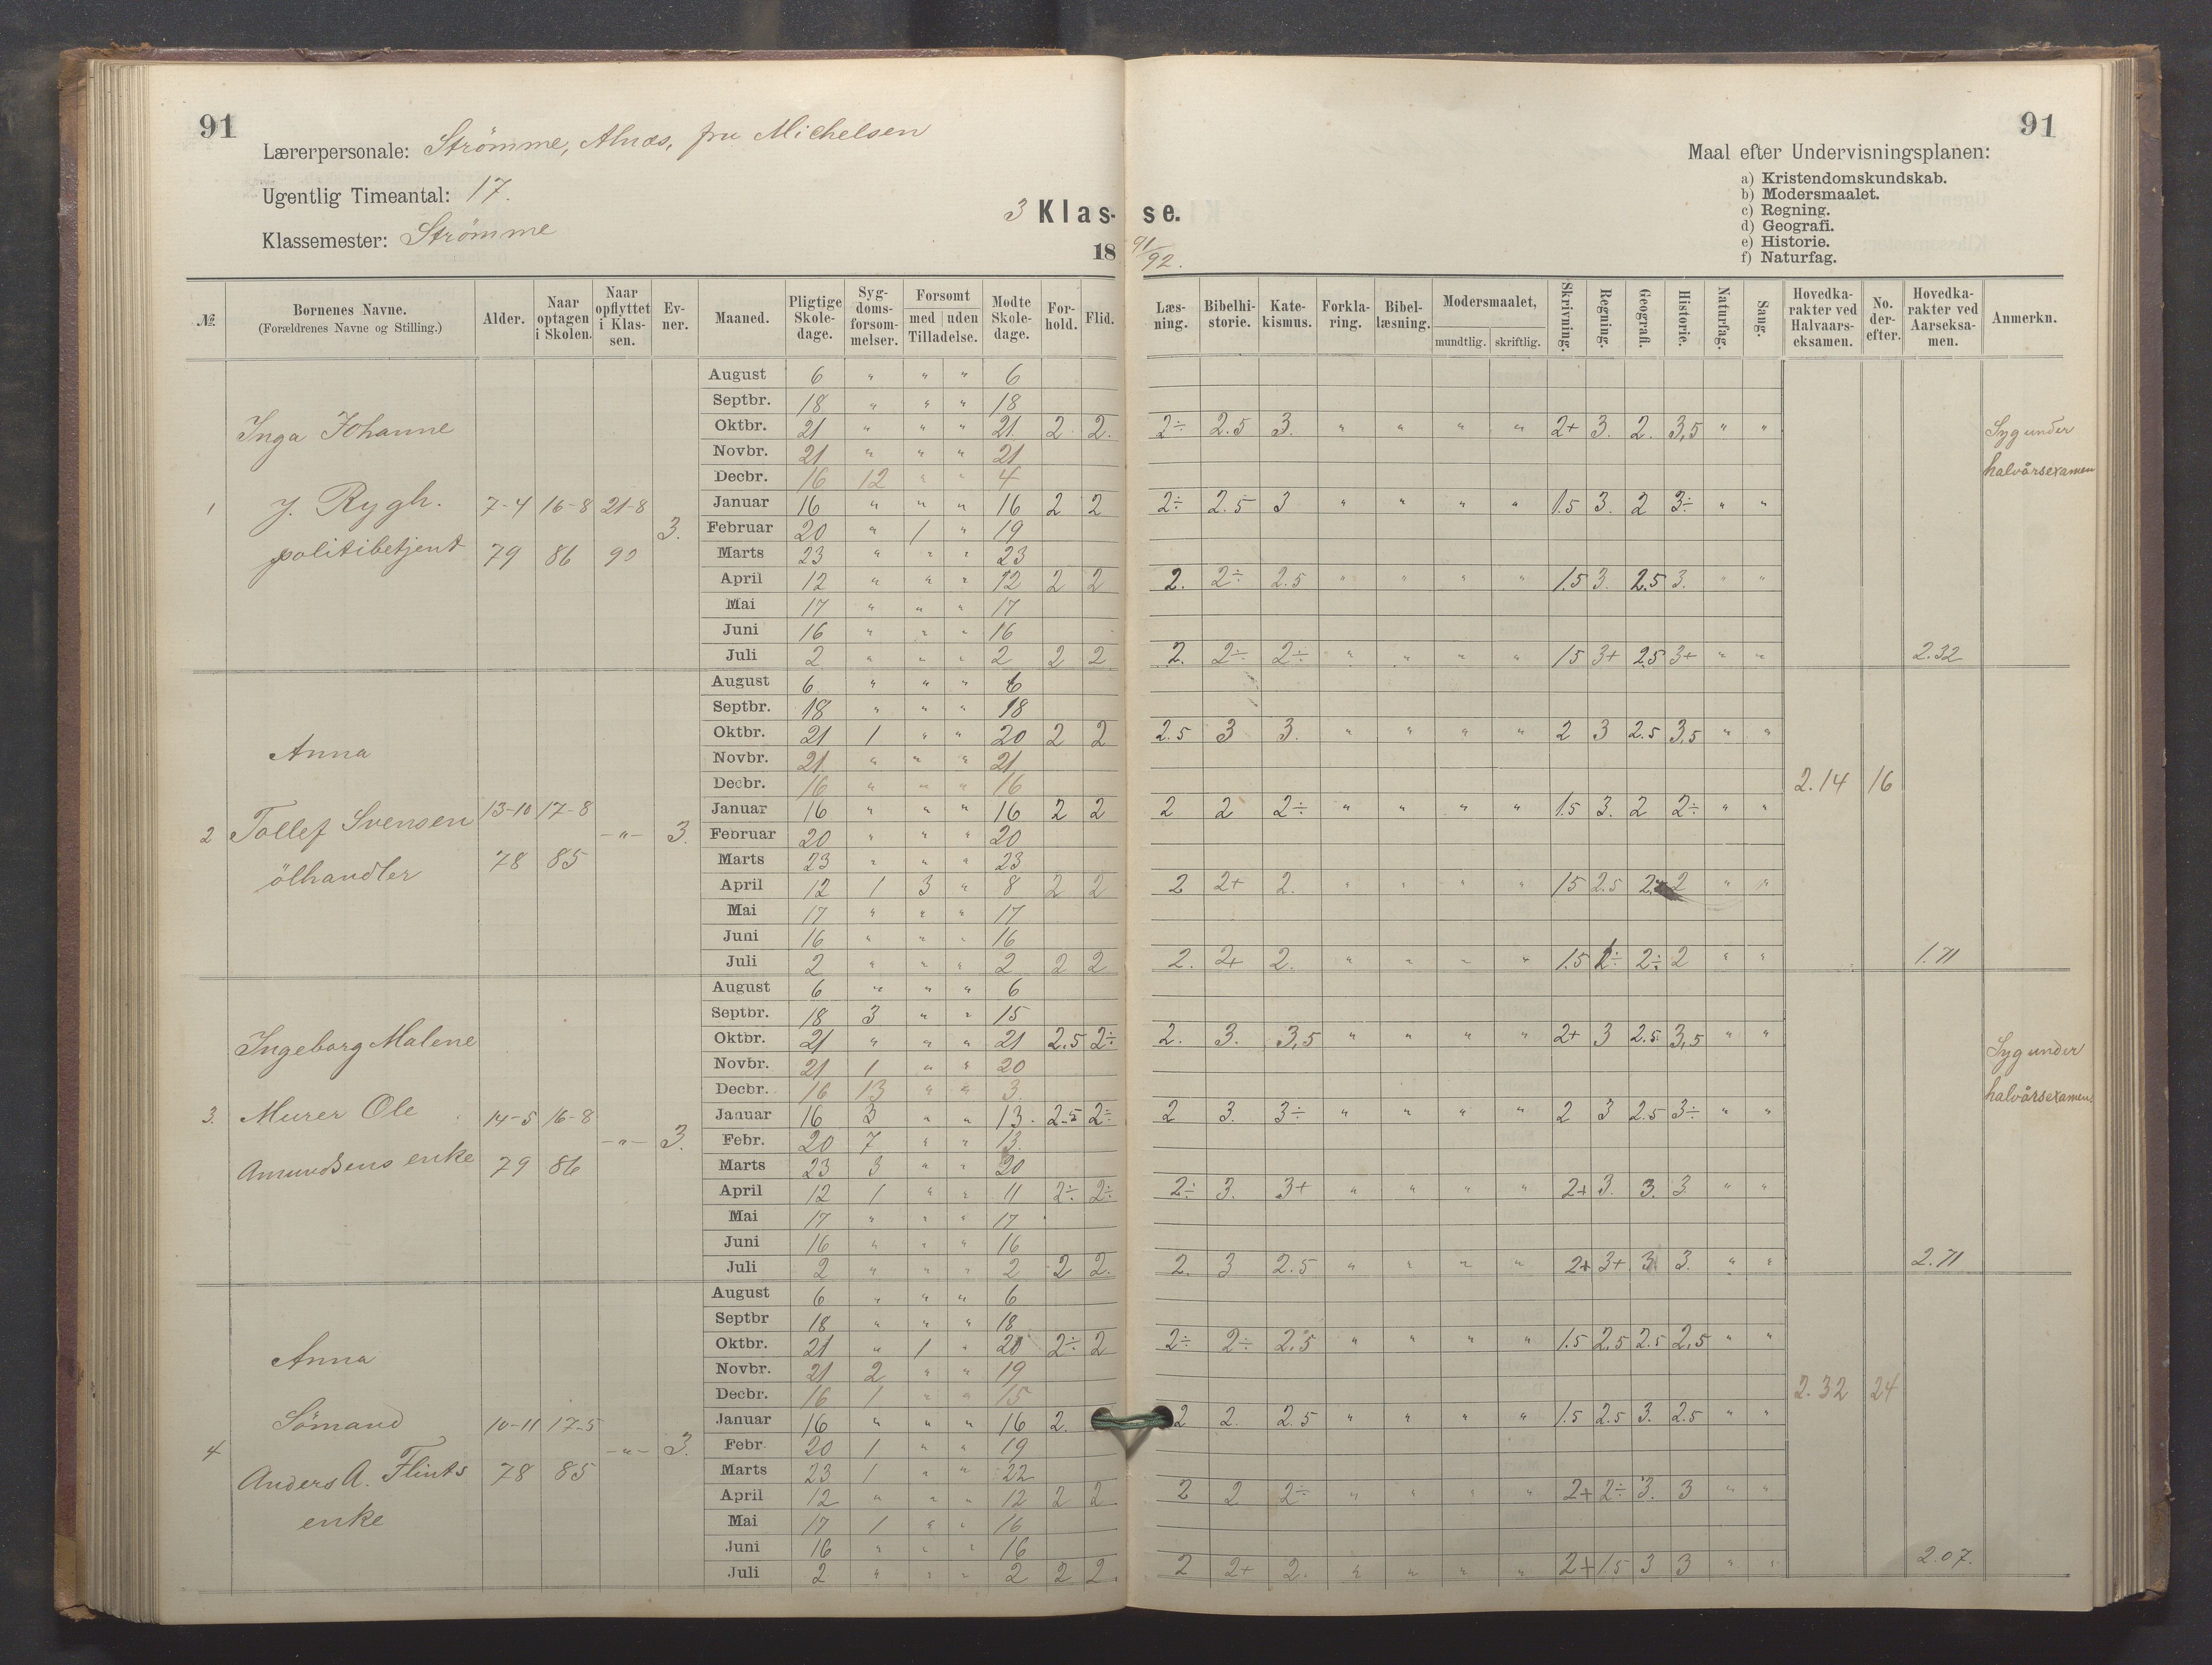 91
91
Lærerpersonale: Strömme, Alnæs, fru Michelsen
Ugentlig Timeantal: 17.
Klassemester: Strömme
3 Klasse.
18 91/92.
Maal efter Undervisningsplanen:
a) Kristendomskundskab.
b) Modersmaalet.
c) Regning.
d) Geografi.
e) Historie.
f) Naturfag.
№ Børnenes Navne. (Forældrenes Navne og Stilling.) Alder. Naar optagen i Skolen. Naar opflyttet i Klassen. Evner. Maaned. Pligtige Skoledage. Sygdomsforsømmelser. Forsømt med uden Tilladelse. Mødte Skoledage. Forhold. Flid. Læsning. Bibelhistorie. Katekismus. Forklaring. Bibellæsning. Modersmaalet, mundtlig. skriftlig. Skrivning. Regning. Geografi. Historie. Naturfag. Sang. Hovedkarakter ved Halvaarseksamen. No. derefter. Hovedkarakter ved Aarseksamen. Anmerkn.
1 Inga Johanne
J. Rygh.
politibetjent
7-4 79 16-8 86 21-8 90 3.
Syg under
halvårsexamen
August 6 " " " 6
Septbr. 18 " " " 18
Oktbr. 21 " " " 21 2 2. 2÷ 2.5 3. " " " " 2+ 3. 2. 3,5 " "
Novbr. 21 " " " 21
Decbr. 16 12 " " 4
Januar 16 " " " 16 2 2 2÷ 2.5 3 " " " " 1.5 3. 2 3÷ " "
Februar 20 " 1 " 19
Marts 23 " " " 23
April 12 " " " 12 2 2 2. 2÷ 2.5 " " " " 1.5 3. 2.5 3. " "
Mai 17 " " " 17
Juni 16 " " " 16
Juli 2 " " " 2 2 2 2. 2÷ 2÷ " " " " 15 3+ 2.5 3+ " " 2.32
2 Anna
Tollef Svensen
ölhandler
13-10 78 17-8 85 -"- 3.
August 6 " " " 6
Septbr. 18 " " " 18
Oktbr. 21 1 " " 20 2 2 2.5 3 3. " " " " 2 3 2.5 3,5 " "
Novbr. 21 " " " 21
Decbr. 16 " " " 16 2.14 16
Januar 16 " " " 16 2 2 2 2 2÷ " " " " 1.5 3. 2 2÷ " "
Februar 20 " " " 20
Marts 23 " " " 23
April 12 1 3 " 8 2 2 2 2+ 2. " " " " 15 2.5 2 " "
Mai 17 " " " 17
Juni 16 " " " 16
Juli 2 " " " 2 2 2 2. 2+ 2. " " " " 1.5 2÷ 2 " " 1.71
3. Ingeborg Malene
Murer Ole
Amundsens enke
14-5 79 16-8 86 -"- 3.
Syg under
halvårsexamen.
August 6 " " " 6
Septbr. 18 3 " " 15
Oktbr. 21 " " " 21 2.5 2÷ 2. 3. 3,5 " " " " 2+ 3 2.5 3,5 " "
Novbr. 21 1 " " 20
Decbr. 16 13 " " 3.
Januar 16 3 " " 13. 2.5 2÷ 2 3. 3÷ " " " " 2 3 2.5 3÷ " "
Febr. 20 7 " " 13.
Marts 23 3 " " 20
April 12 1 " " 11 2÷ 2÷ 2÷ 3. 3+ " " " " 2+ 3. 3. 3. " "
Mai 17 " " " 17
Juni 16 " " " 16
Juli 2 " " " 2 2 2. 2. 3 2.5 " " " " 2+ 3+ 3 3. " " 2.71
4 Anna
Sömand
Anders A. Flints
enke
10-11 78 17-5 85 -"- 3.
August 6 " " " 6
Septbr 18 " " " 18
Oktbr. 21 " 1 " 20 2÷ 2 2÷ 2÷ 2.5 " " " " 1.5 2,5 2.5 2,5 " "
Novbr. 21 2 " " 19
Decbr. 16 1 " " 15 2.32 24
Januar 16 " " " 16 2. 2 2. 2.5 " " " " 1.5 2.5 3. 2.5 " "
Febr. 20 1 " " 19
Marts 23 1 " " 22
April 12 " " " 12 2 2 2 2 2÷ " " " " 2+ 2÷ 3. 3 " "
Mai 17 1 " " 16
Juni 16 " " " 16
Juli 2 " " " 2 2 2. 2 2+ 2. " " " " 2+ 1.5 3 3 " " 2.07.